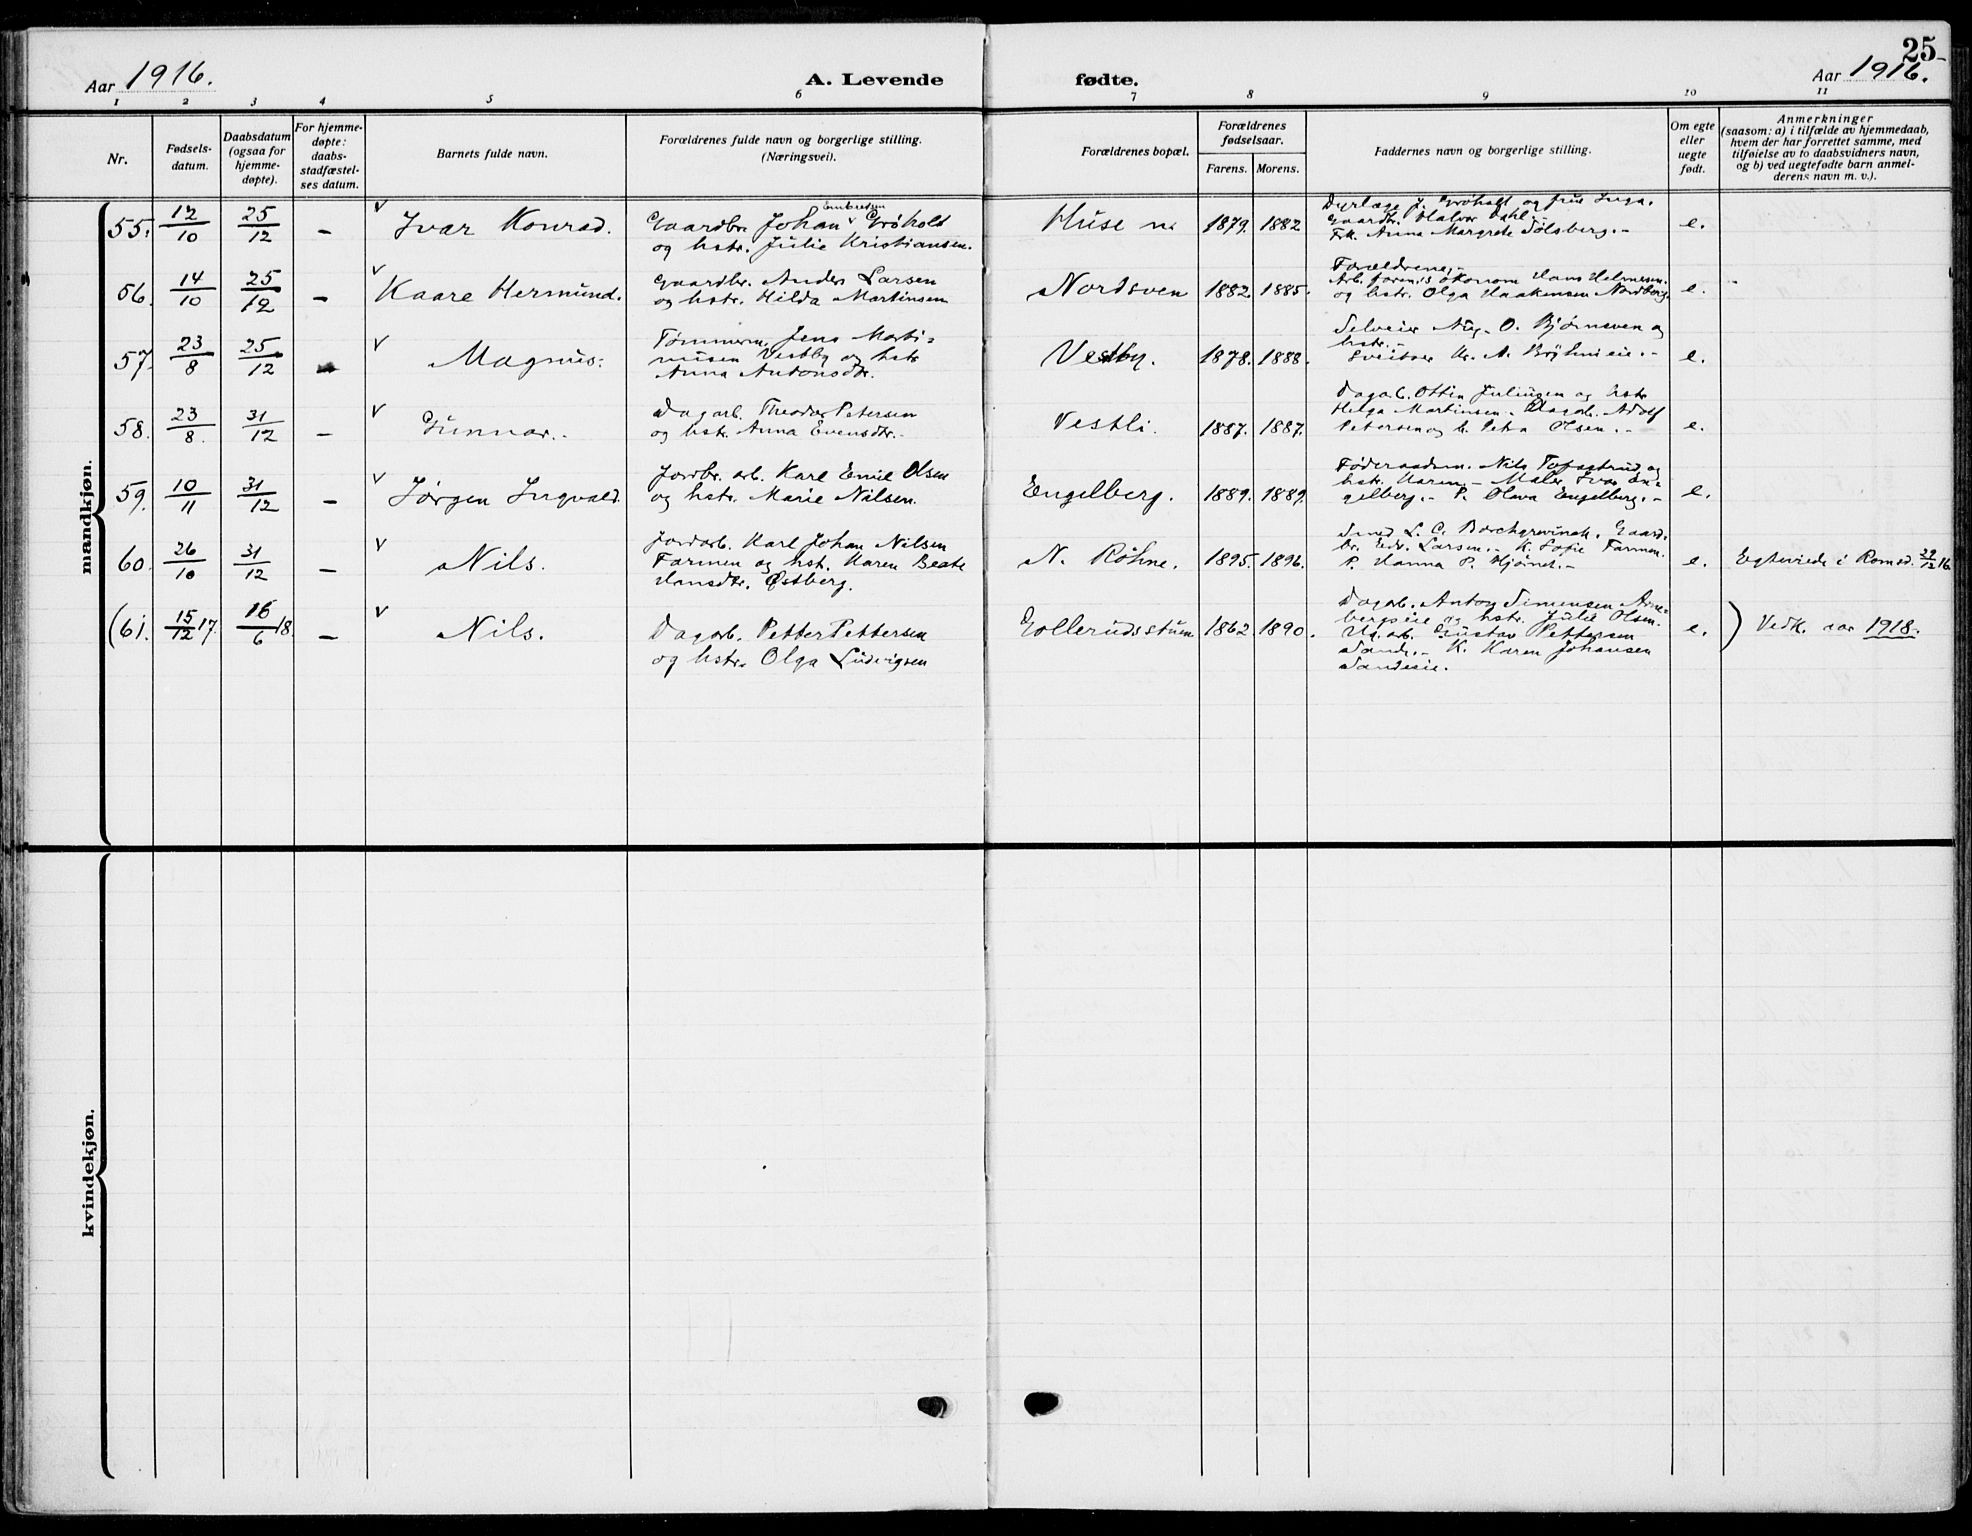 25
Aar 1916. A. Levende fødte. Aar 1916.
1 2 3 4 5 6 7 8 9 10 11
Nr.
Fødsels-
datum.
Daabsdatum
(ogsaa for
hjemme-
døpte).
For hjemme-
døpte:
daabs-
stadfæstel-
ses datum.
Barnets fulde navn.
Forældrenes fulde navn og borgerlige stilling.
(Næringsvei).
Forældrenes bopæl.
Forældrenes
fødselsaar.
Farens. Morens.
Faddernes navn og borgerlige stilling.
Om egte
eller
uegte
født.
Anmerkninger
(saasom: a) i tilfælde av hjemmedaab,
hvem der har forrettet samme, med
tilføielse av to daabsvidners navn,
og b) ved uegtefødte barn anmel-
derens navn m. v.).
mandkjøn.
55. 12/10 25/12 – Ivar Konrad.
Embretsen
Gaardbr. Johan v Grøholt
og hstr. Julie Kristiansen.
Huse n. 1879. 1882
Dyrlæge J. Grøholt og frue Inga.
Gaardbr. Halvor Dahl.–
Frk. Anna Margrete Solsberg.–
e.
56. 14/10 25/12 – Kaare Hermund.
Gaardbr. Anders Larsen
og hstr. Hilda Martinsen
Nordsven 1882 1885.
Forældrene,–
Arb. form. økonom Hans Helmesen
og hstr. Olga Haakensen Nordberg.
e.
57. 23/8 25/12 – Magnus.
Tømmerm. Jens Marti-
nusen Vestby og hstr
Anna Antonsdtr.
Vestby. 1878. 1888.
Selveier Aug. O. Bjørnsven og
hstr.–
Sveitser Kr. A.
e.
58. 23/8. 31/12 – Gunnar.
Dagarb. Theodor Petersen
og hstr. Anna Evensdtr.–
Vestli. 1887. 1887.
Dagarb. Ottin Julinsen og hstr
Helga Martinsen. Dagarb. Adolf
Petersen og h. Petra Olsen.–
e.
59. 10/11 31/12 – Jørgen Ingvald.
Jordbr. arb. Karl Emil Olsen
og hstr. Marie Nilsen.
Engelberg. 1889. 1889
Føderaadsm. Nils Tofastrud og
hstr. Karen.– Maler Ivar En-
gelberg.– P. Olava Engelberg.–
e.
60. 26/10 31/12 – Nils.
Jordarb. Karl Johan Nilsen
Farmen og hst. Karen Beate
Hansdtr. Østberg.
N. Røhne. 1895. 1896.
Smed L. C. Borchgrevinck. Gaard-
br. Edv. Larsen.– K. Sofie Farmen.
P. Hanna P. Hjørnet.–
e. Egteviede i Romsd. 29/12 16
(61. 15/12 17. 16/6 18. – Nils.
Dagarb. Petter Pettersen
og hstr. Olga Ludvigsen
Gollerudsstuen 1862. 1890.
Dagarb. Anton Simensen Arne-
bergseie og hstr. Julie Olsen.
Ug. arb. Gustav Pettersen
Sand.– K. Karen Johansen
Sandseie.
e. ) Vedk. aar 1918.
kvindekjøn.